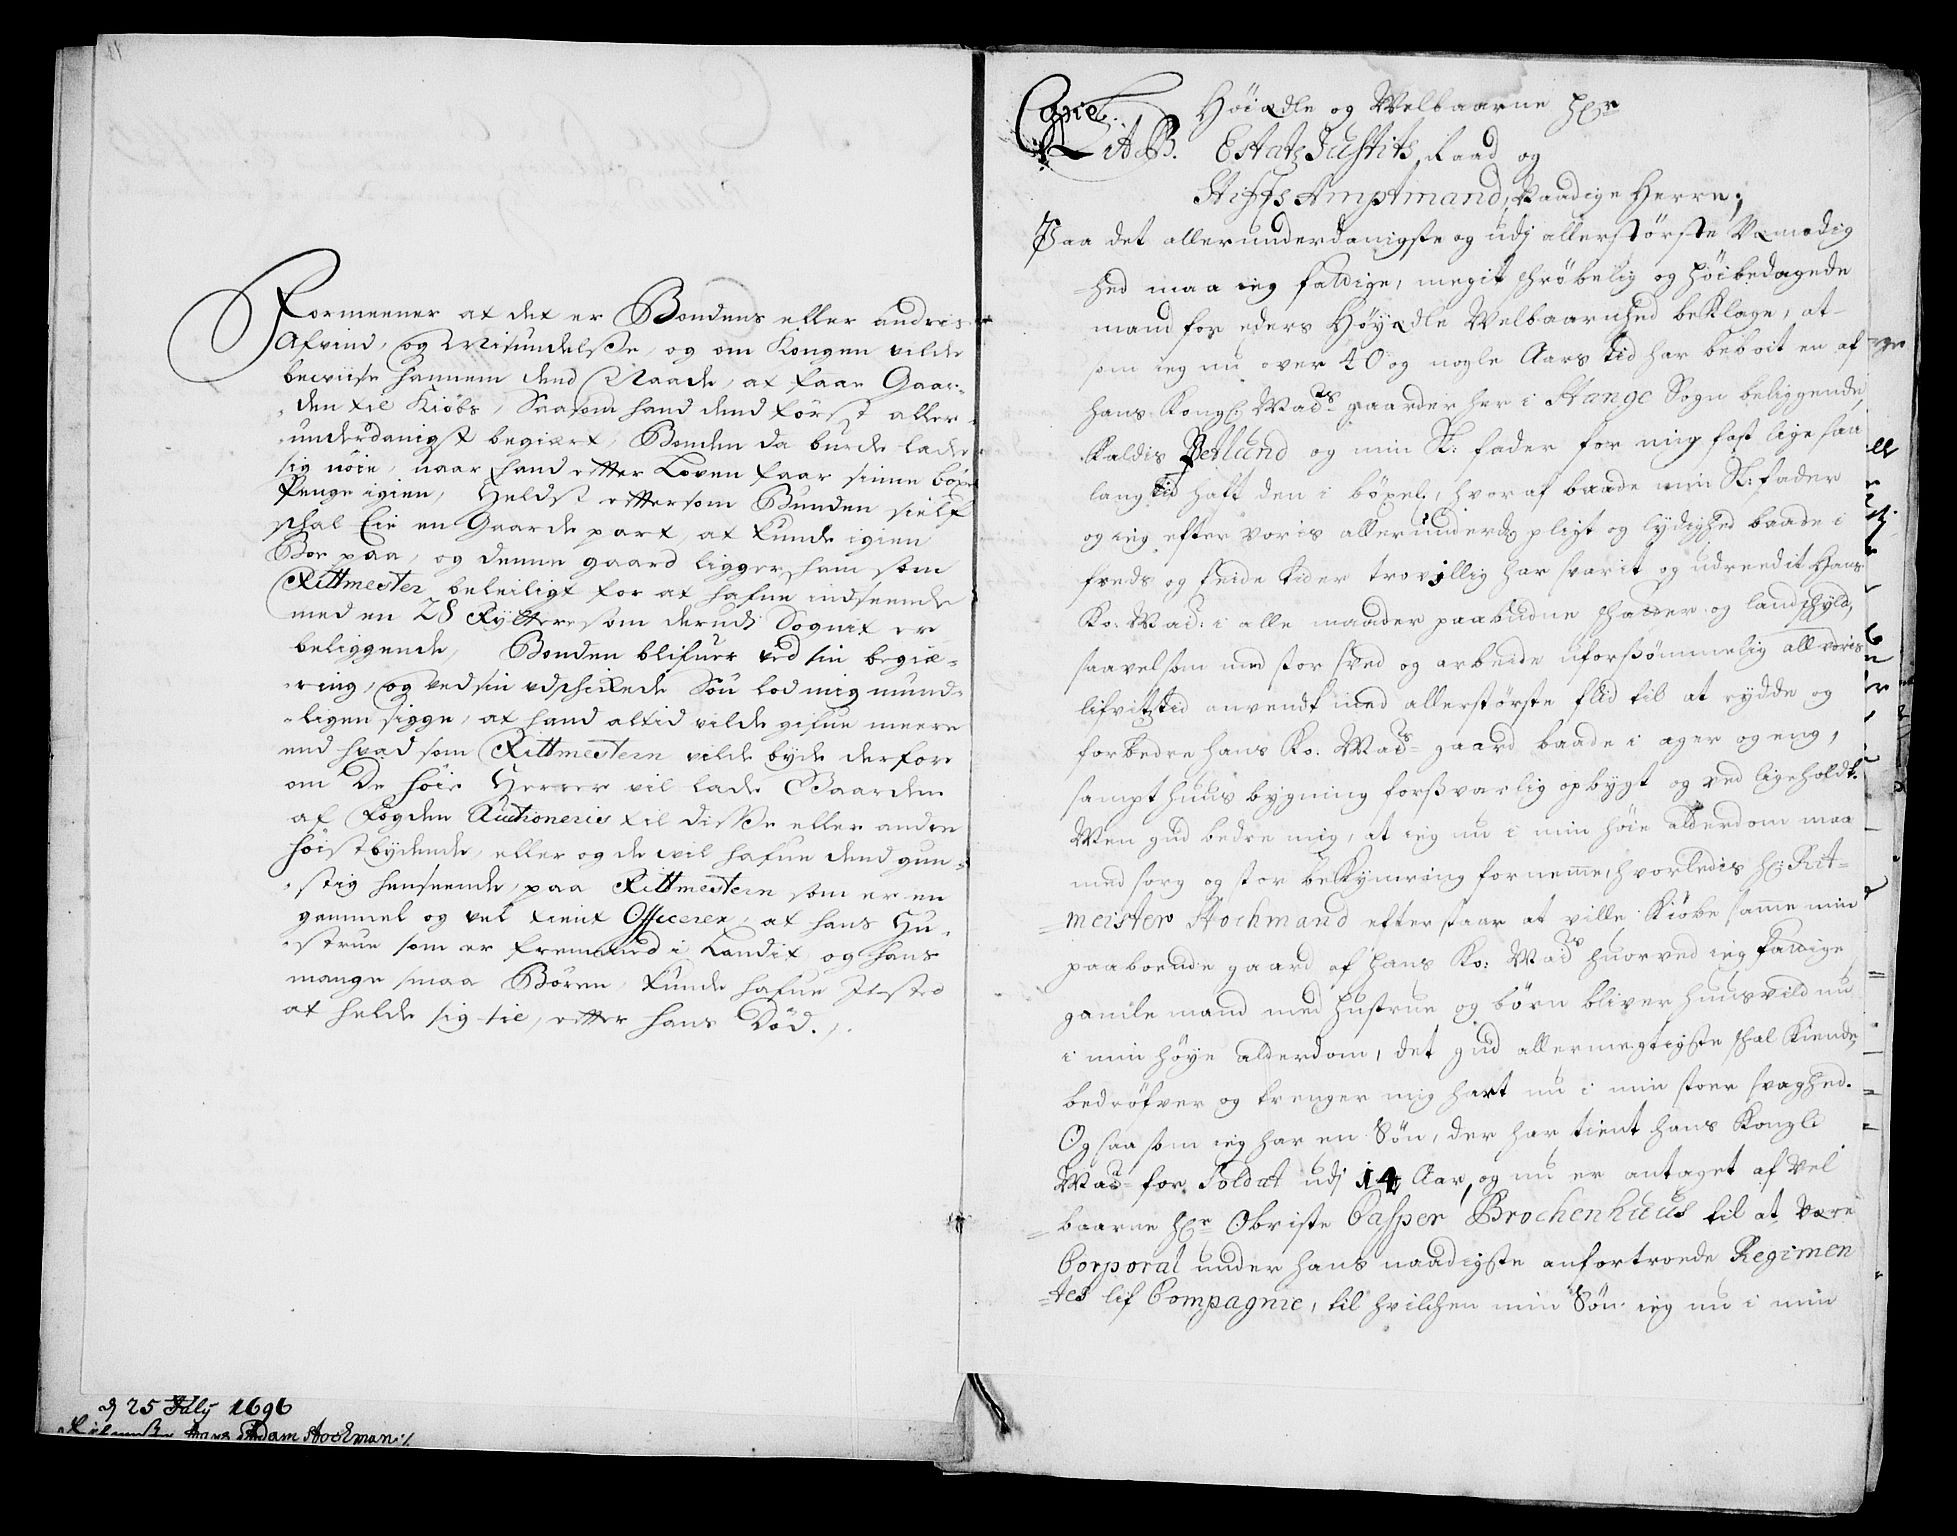 Formeener at det er Bondens eller andres
Afvind, og Misundelsse, og om Kongen vilde
beviise hannem dend Naade, at faae Gaar-
den til Kiøbs, Saasom hand dend først aller-
underdanigst begiært, Bonden da burde lade
sig nøie, naar hand etter Loven faar sinne böxel
Penge igien, Heldst ettersom Bunden sielf
schal Eie en Gaarde part, at kunde igien
Boe paa, og denne gaard ligger ham som
Rittmester beleiligt for at hafue indseende
med en 28 Ryttere som derudi Sognit er
beliggende, Bonden blifuer ved sin begiæ-
ring, og ved sin udschikede Søn lod mig mund-
ligen sigge, at hand altid vilde gifue meere
end hvad som Rittmestern vilde byde derfor
om De høie Herrer vil lade Gaarden
af fogden Auctioneris til disse eller anden
høistbydende, eller og de vil hafue dend gun-
stig henseende, paa Rittmestern som er en
gammel og vel tient Officerer, at hans Hu-
strue som er fremmed i Landit og hans
mange smaa Børen, kunde hafue Ilsted
at helde sig til, etter hans Død.
d 25 July 1696
Hans Adam Stockman
Copie.
Høiædle og Welbaarne Hr
Lit B. Estatz Justits Raad og
Stiffts Amptmand, Naadige Herre;
Paa det allerunderdanigste og udj allerstørste Ydmødig
hed maa ieg fattige, megit schrøbelig og høibedagede
mand for eders Høyædle Welbaarnhed beklage, at
som ieg nu over 40 og nogle Aars tid har beboit en af
hans Kongl Mads gaarder her i Stange Sogn beliggende,
kaldis Jetlund og min Sl: fader for mig fast lige saa
lang tid haft den i böxel, hvoraf baade min Sl: fader
og ieg efter voris allerunderd pligt og lydighed baade i
freds og feide tider trovillig har svarit og udreedit Hans
Ko: Mad: i alle maader paabudne schatter og landschyld,
saavelsom med stor sved og arbeide uforsømmelig all voris
lifvitztid anvendt med allerstørste flid til at rydde og
forbedre hans Ko: Mads gaard baade i ager og eng,
sampt huus bygning forsvarlig opbygt og ved lige holdt.
Men gud bedre mig, at ieg nu i min høie alderdom maa
med sorg og stor bekymring fornemme, hvorledis Hr Rit-
meister Stochmand efterstaar at ville kiøbe samme min
paaboende gaard af hans Ko: Mads huorved ieg fattige
gamle mand med hustrue og børn bliver huusvild nu
i min høye alderdom, det gud allermegtigste schal kiende,
bedrøfver og trenger mig hart nu i min stoer svaghed.
Og saasom ieg har en Søn, der har tient hans Kongli
Mad for Soldat udj 14 Aar, og nu er antaget af Vel
baarne Hr Obriste Casper Brochenhuus til at være
Corporal under hans naadigste anfortroede Regimen
tes lif Compagnie, til hvilchen min Søn ieg nu i min